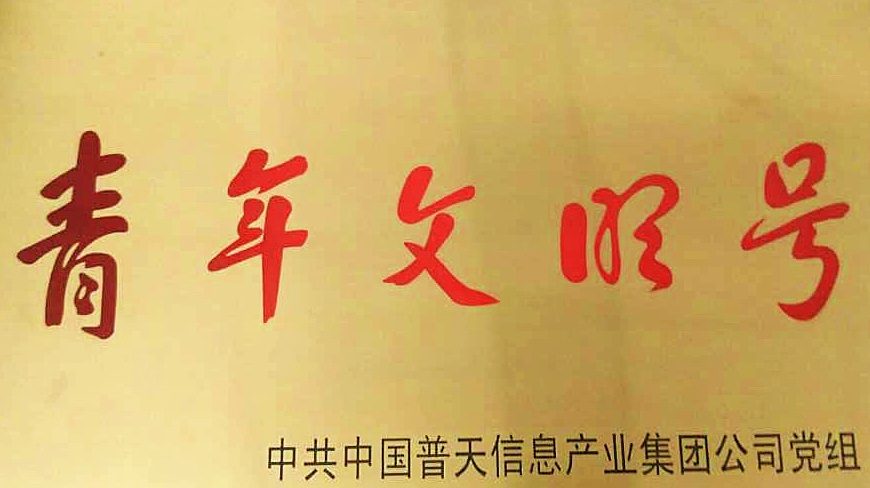 青年文明号
中共中国普天信息产业集团公司党组